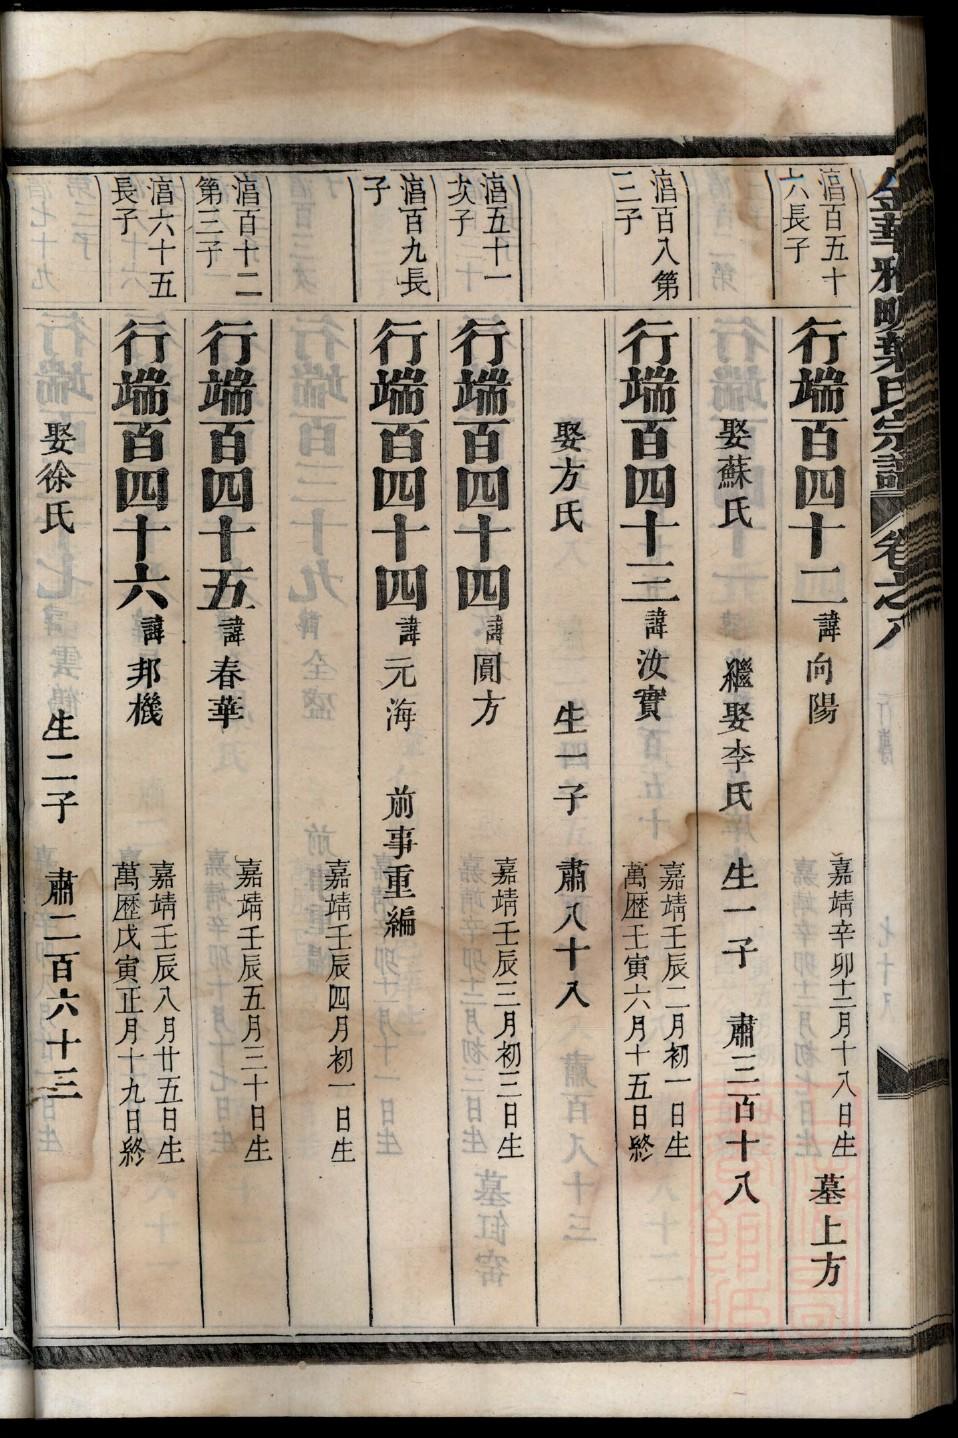 金華雅畈葉氏宗譜 卷之八
湻百五十六長子
行端百四十二 諱向陽 嘉靖辛卯十二月十八日生 墓上方
娶蘇氏 繼娶李氏 生一子 肅三百十八
湻百八第三子
行端百四十三 諱汝實 嘉靖壬辰二月初一日生 萬歴壬寅六月十五日終
娶方氏 生一子 肅八十八
湻五十一次子
行端百四十四 諱圓方 嘉靖壬辰三月初三日生
湻百九長子
行端百四十四 諱元海 前事重編
嘉靖壬辰四月初一日生
湻百十二第三子
行端百四十五 諱春華 嘉靖壬辰五月三十日生
湻六十五長子
行端百四十六 諱邦機 嘉靖壬辰八月廿五日生 萬歴戊寅正月十九日終
娶徐氏 生二子 肅二百六十三